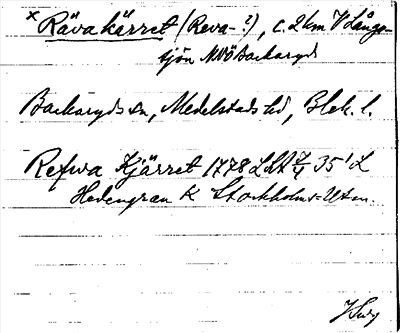 × Rävakärret (Reva-?), c. 2 km V Långa-
sjön NNÖ Backaryd
Backaryds sn, Medelstads hd, Blek. l.
Refwa Kjärret 1778 LMA 35' L
Hedengran K Stockholms-Utsn.